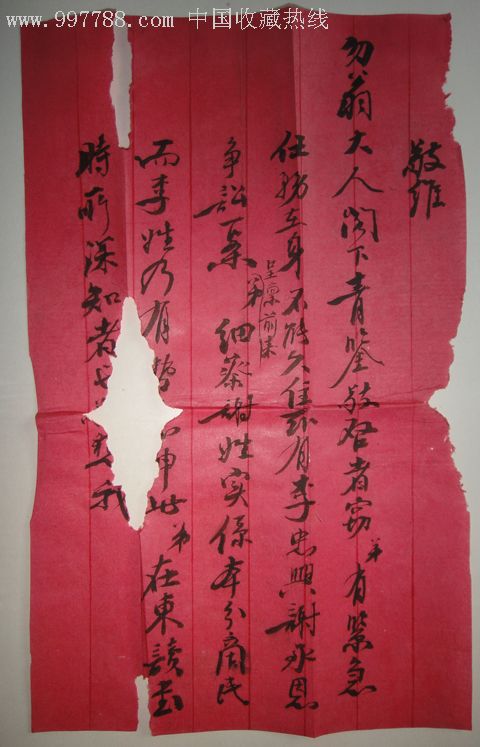 www.997788.com 中国收藏热线
敬維
翁大人閣下青鑒敬啓者竊弟有緊急
任務在身不能久住现有李忠興謝永恩
争訟一案弟呈禀前来細蔡謝姓实係本分商民
而李姓乃有势 申 弟在東讀書
時所深知者 我